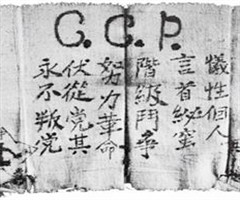 C.C.P.
犧牲個人
言首秘蜜
階級鬥争
努力革命
伏從党其
永不叛党